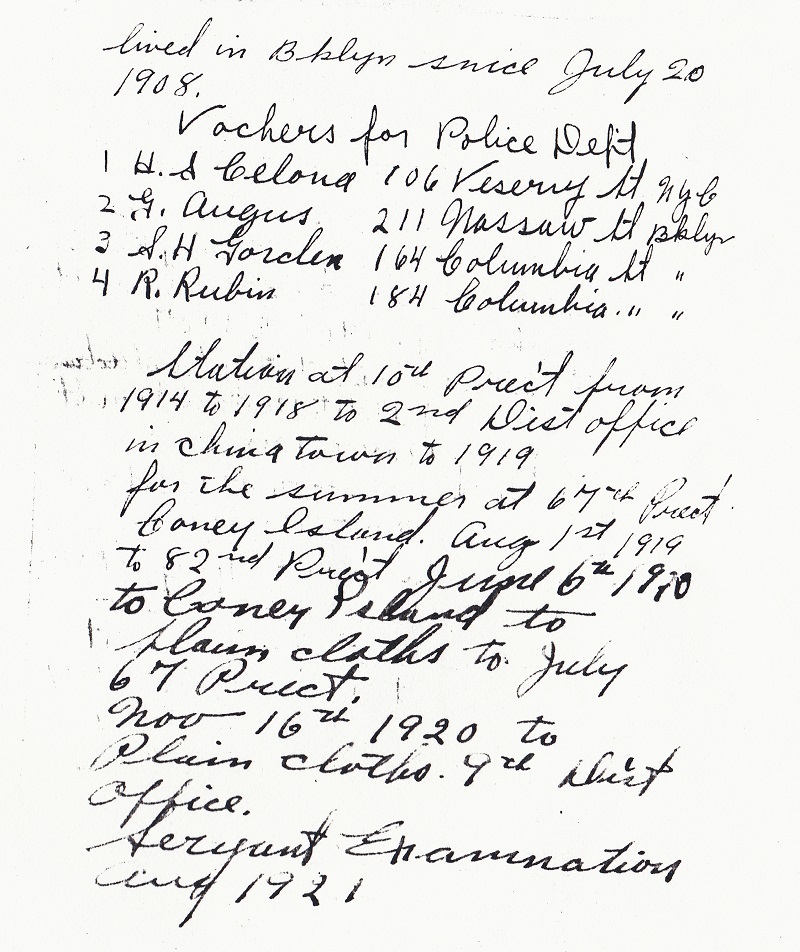 lived in Bklyn snice July 20
1908.
Vochers for Police Dept
1 H. S Celona 106 Veserry St NYC
2 G. Augus 211 Nassaw St Bklyn
3 S. H Gorden 164 Columbia St "
4 R. Rubin 184 Columbia. " "
Station at 10th Prect from
1914 to 1918 to 2nd Dist office
in china town to 1919
for the summer at 67th Prect.
Coney Island. Aug 1st 1919
to 82nd Prect June 6th 1920
to Coney Island to
plain cloths to July
67 Prect.
Nov 16th 1920 to
Plain cloths. 9th Dist
Office.
Sergant Examnation
Aug 1921